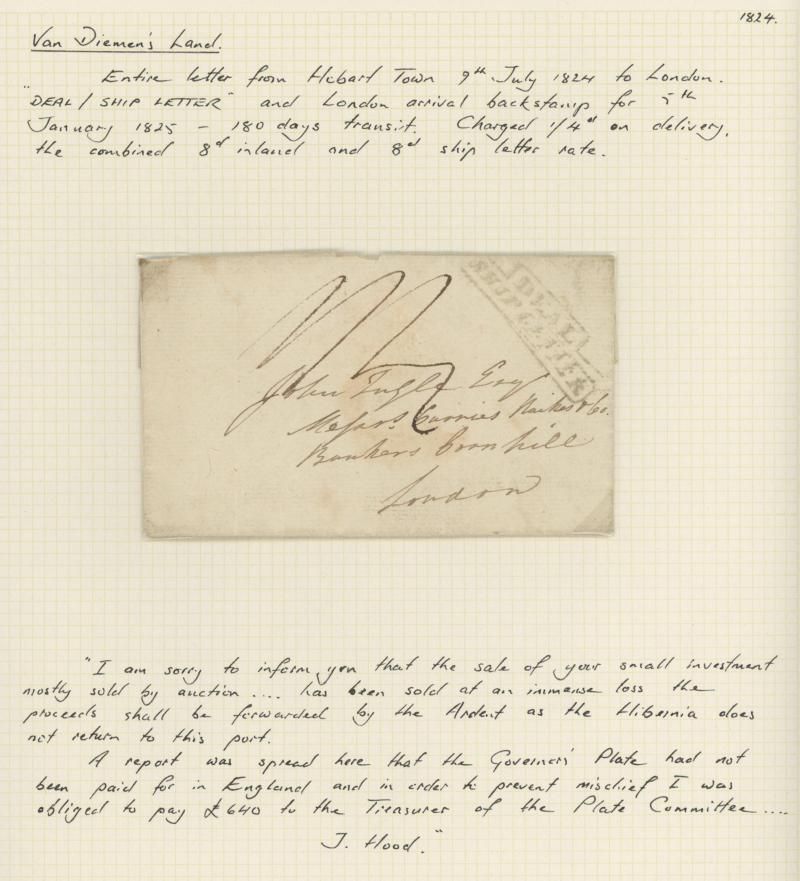 1824.
Van Diemen's Land.
Entire letter from Hobart Town 9th July 1824 to London.
"DEAL / SHIP LETTER" and London arrival backstamp for 5th
January 1825 - 180 days transit. Charged 1/4d on delivery,
the combined 8d inland and 8d ship letter rate.
DEAL
SHIP LETTER
John Ingle Esqr
Messrs Curries Raikes & Co.
Bankers Cornhill
London
"I am sorry to inform you that the sale of your small investment
mostly sold by auction .... has been sold at an immense loss the
proceeds shall be forwarded by the Ardent as the Hibernia does
not return to this port.
A report was spread here that the Governors' Plate had not
been paid for in England and in order to prevent mischief I was
obliged to pay £640 to the Treasurer of the Plate Committee ....
J. Hood."